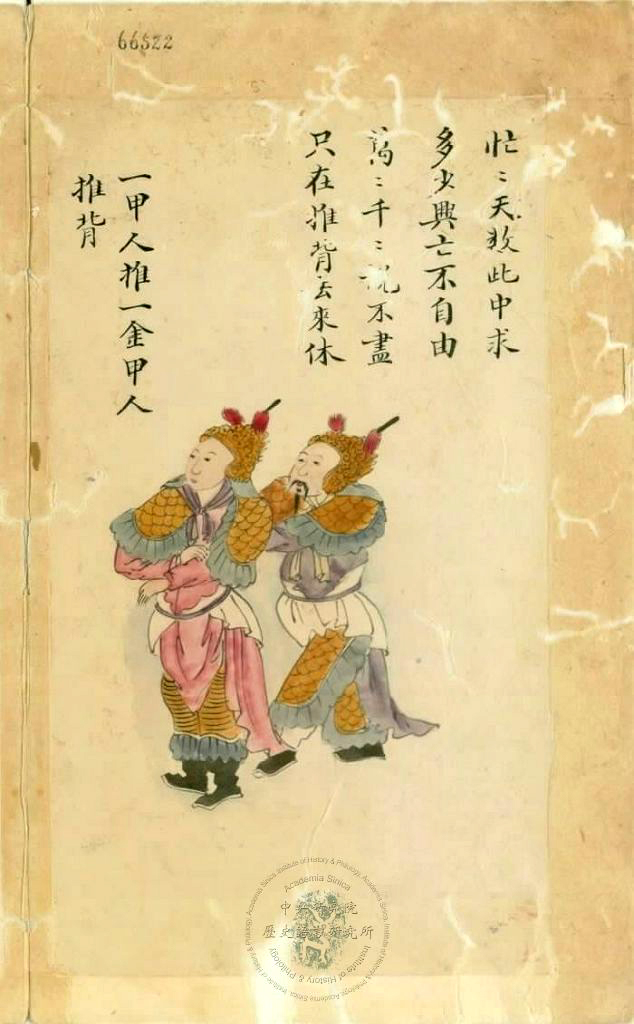 66522
忙〻天数此中求
多少興亡不自由
萬〻千〻說不盡
只在推背去來休
一甲人推一金甲人
推背
Academia Sinica
中央研究院
歷史語言研究所
Institute of History & Philology